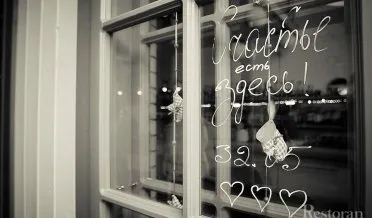 Счастье
есть
здесь!
32.05
Restoran